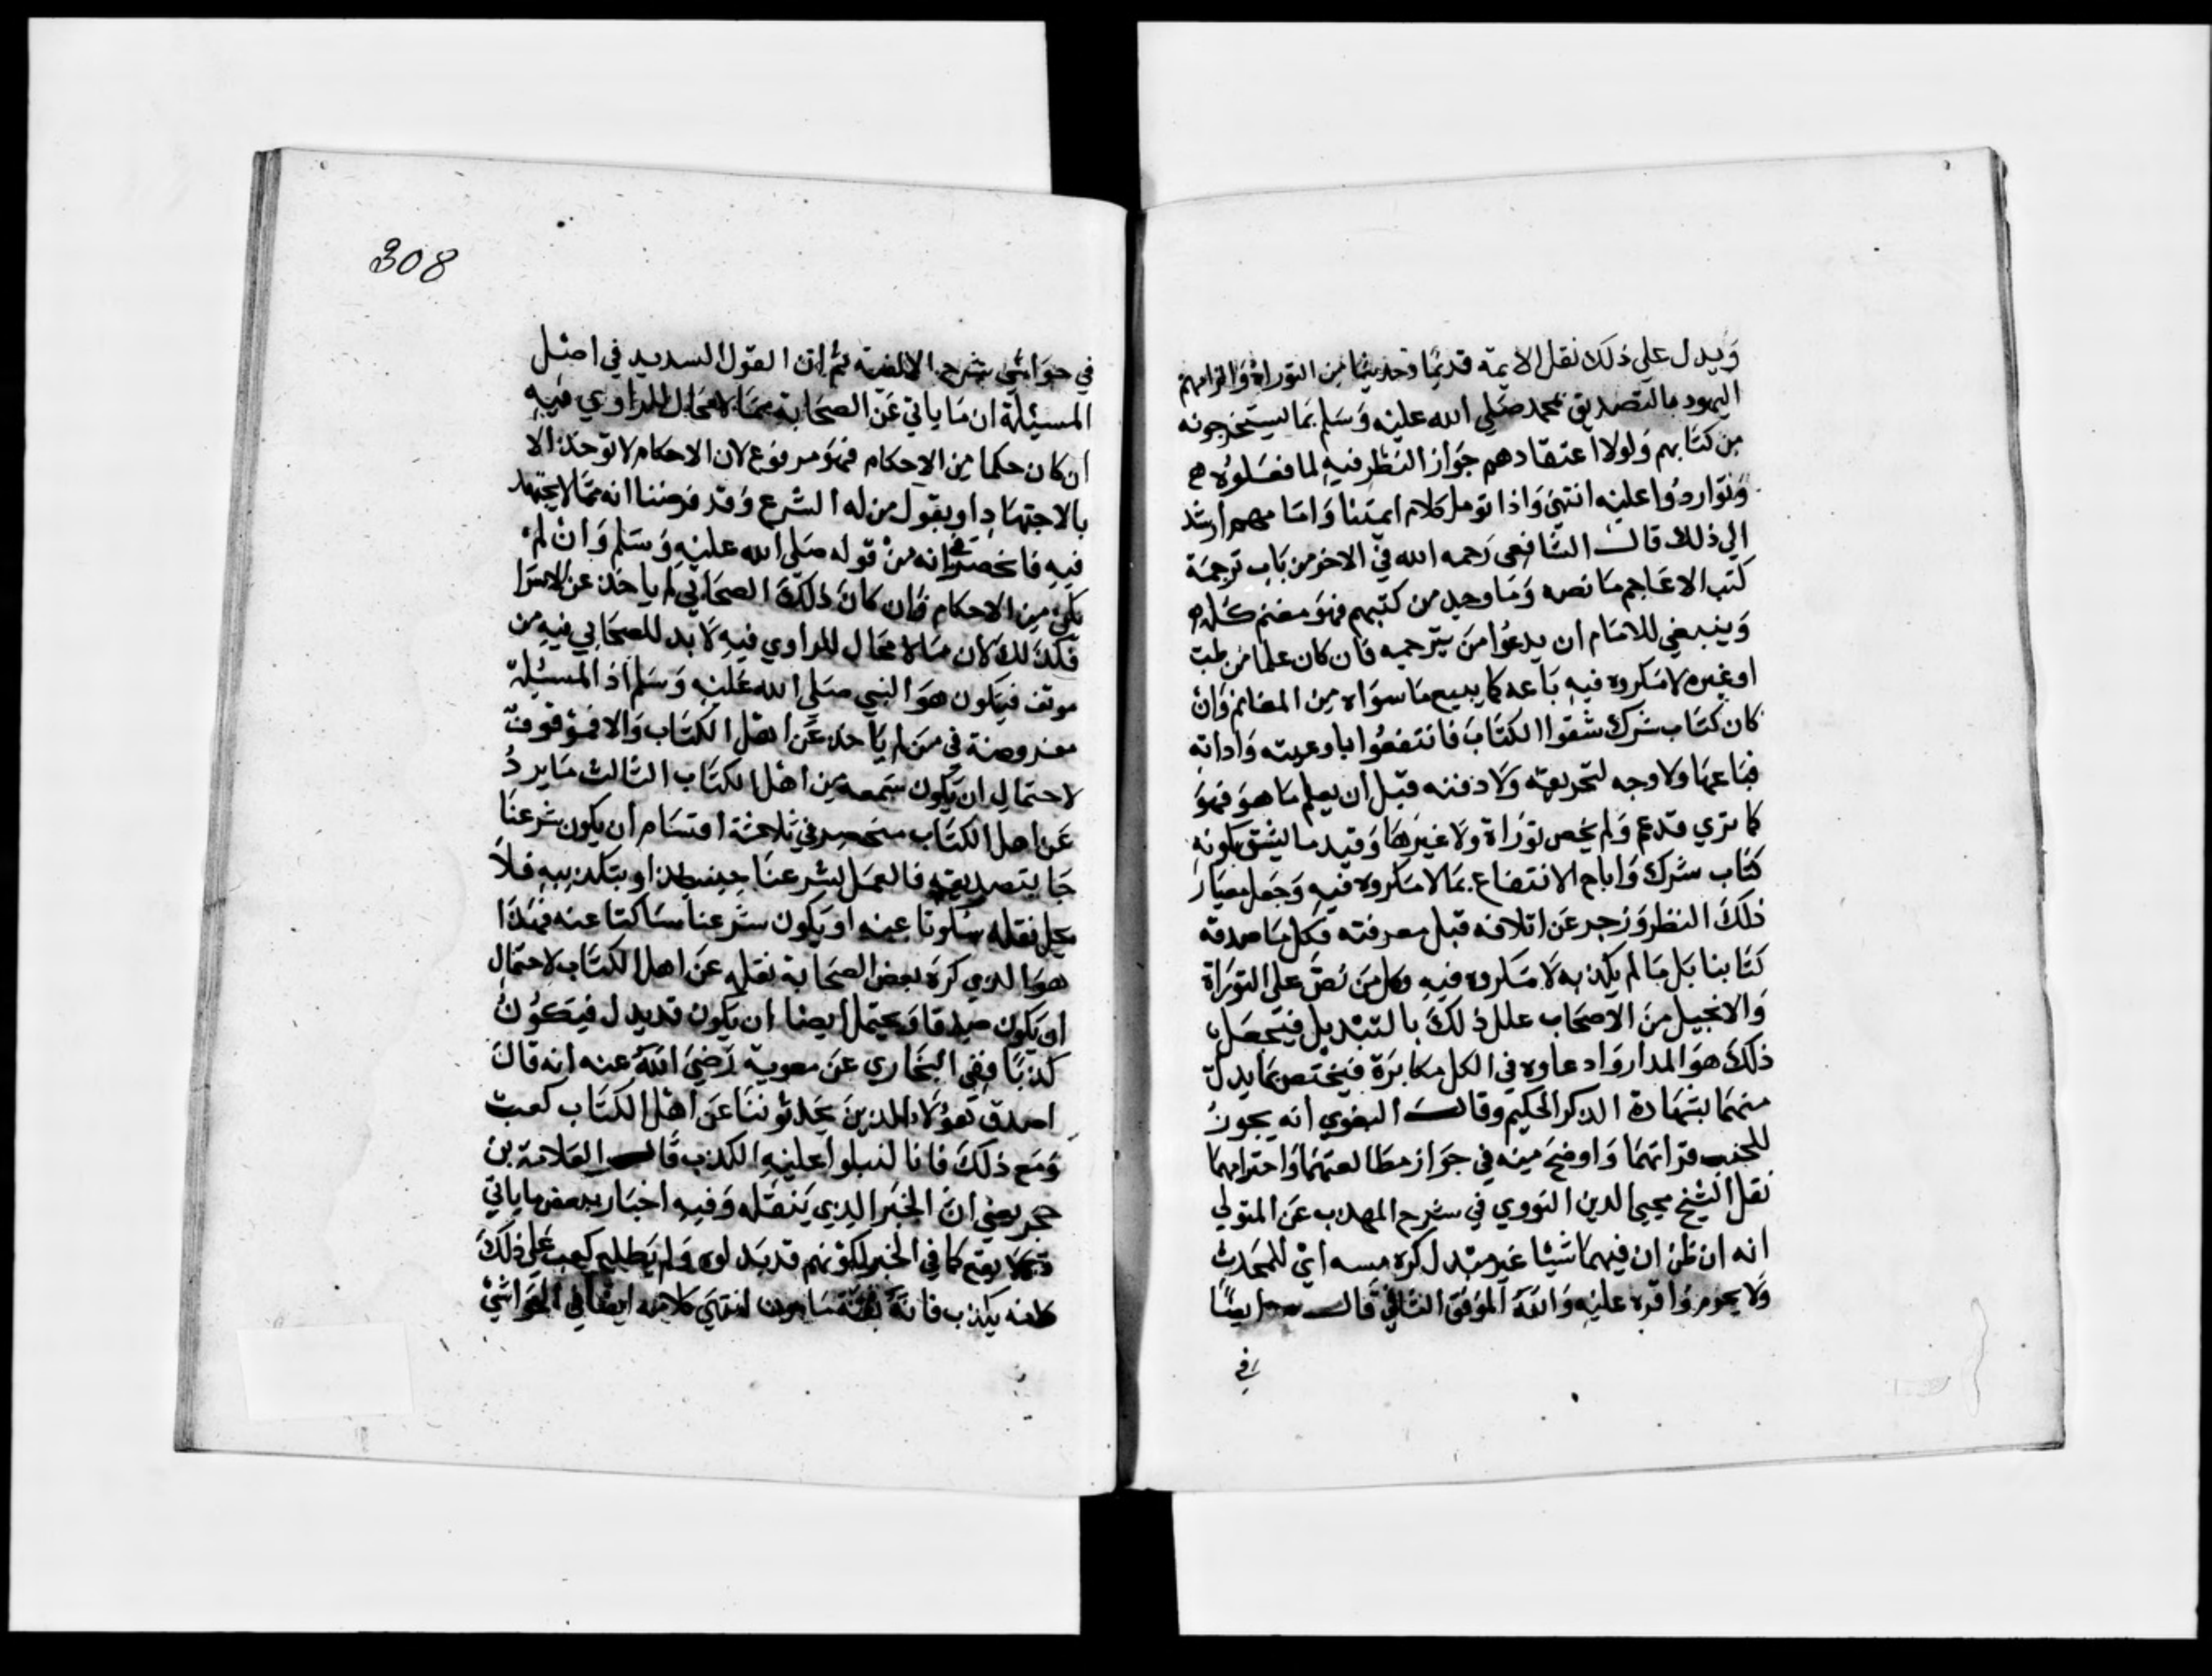 ويدل على ذلك نقل الايمة قديمًا وحديثًا من التوراة والزامهم
اليهود بالتصديق بمحمد صلى الله عليه وسلم بما يستخرجونه
من كتابهم ولولا اعتقادهم جواز النظر فيه لما فعلوه
وتواردوا عليه انتهى واذا تومل كلام ايمتنا واما مهم ارشد
الى ذلك قال الشافعى رحمه الله في الاخر من باب ترجمة
كتب الاعاجم ما نصه وما وجد من كتبهم فهو مغنم كله
وينبغي للامام ان يدعوا من يترجمه فان كان علما من طب
او غيره لا مكروه فيه باعه كما يبيع ما سواه من المغانم وان
كان كتاب شرك شقوا الكتاب فانتفعوا باوعيته واداته
فباعها ولا وجه لتحريقه ولا دفنه قبل ان يعلم ما هو فهو
كما ترى قد عم ولم يخص توراة ولا غيرها وقيد ما يشق بكونه
كتاب شرك واباح الانتفاع بما لا مكروه فيه وجعل معيار
ذلك النظر وزجر عن اتلافه قبل معرفته فكل ما صدقه
كتابنا بل ما لم يكذبه لا مكروه فيه وكل من نص على التوراة
والانجيل من الاصحاب علل ذلك بالتبديل فيتحصل ان
ذلك هو المدار وادعاوه في الكل مكابرة فيختص بما بدل
منهما بشهادة الذكر الحكيم وقال البغوي انه يجوز
للجنب قراتهما واوضح مينه في جواز مطالعتهما واحترامهما
نقل الشيخ محيي الدين النووي في شرح المهذب عن المتولي
انه ان ظن ان فيهما شيئا غير مبدل كره مسه اي للمحدث
ولا يحرم واقره عليه والله الموفق الثاني قال ايضًا
في
308
في حواشي شرح الالفية ثم ان القول السديد في اصل
المسيلة ان ما ياتي عن الصحابة مما لا مجال للراوي فيه
ان كان حكما من الاحكام فهو مرفوع لان الاحكام لا توخذ الا
بالاجتهاد او بقول من له الشرع وقد فرضنا انه مما لا يجتهد
فيه فانحصر في انه من قوله صلى الله عليه وسلم وان لم
يكن من الاحكام فان كان ذلك الصحابي لم ياخذ عن الاسرا
فكذلك لان ما لا مجال للراوي فيه لا بد للصحابي فيه من
موقف فيكون هو النبي صلى الله عليه وسلم اذ المسيلة
مفروضة في من لم ياخذ عن اهل الكتاب والا فموقوف
لاحتمال ان يكون سمعه من اهل الكتاب الثالث ما يرد
عن اهل الكتاب منحصر في ثلاثة اقسام ان يكون شرعنا
جا بتصديقه فالعمل بشرعنا حينيذ او بتكذيبه فلا
يحل نقله سكوتا عنه او يكون شرعنا ساكتا عنه فهذا
هو الذي كره بعض الصحابة نقله عن اهل الكتاب لاحتمال
ان يكون صدقا ويحتمل ايضا ان يكون قد بدل فيكون
كذبًا ففي البخاري عن معوية رضي الله عنه انه قال
اصدق هولاء الذين يحدثوننا عن اهل الكتاب كعب
ومع ذلك فانا لنبلوا عليه الكذب قال العلامة بن
حجر يعني ان الخبر الذي ينقله وفيه اخبار ببعض ما ياتي
لا يقع كما في الخبر لكونهم قد بدلوه ولم يطلع كعب على ذلك
بكذب فانه ثقة مامون انتهى كلامه ايضا في الحواشي